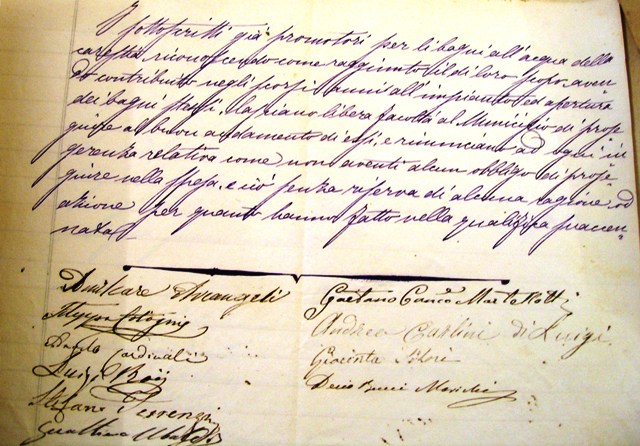 I sottoscritti già promotori per li bagni all'acqua della
caretta riconoscendo come raggiunto il di loro scopo, aven
do contribuito negli scorsi anni all'impianto ed apertura
dei bagni stessi, lasciano libera facoltà al Municipio di prose
guire al buon andamento di essi, e rinunciano ad ogni in
gerenza relativa come non aventi alcun obbligo di prose
guire nella spesa, e ciò senza riserva di alcuna ragione od
azione per quanto hanno fatto nella qualifica puaccen
nata
Amilcare Arcangeli
Gaetano Can.co Martellotti
Andrea Carlini di Luigi
Cardinali
Giacinta
Luigi
Decio Bucci
Stefano Terrenzi